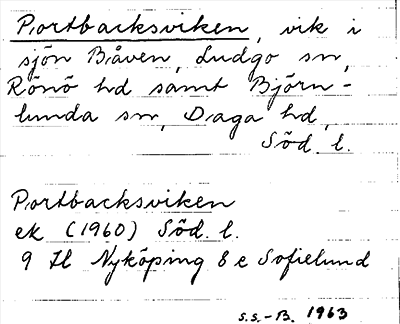 Portbacksviken, vik i
sjön Båven, Ludgo sn,
Rönö hd samt Björn-
lunda sn, Daga hd,
Söd. l.
Portbacksviken
ek (1960) Söd. l.
9 H Nyköping 8 e Sofielund
S.S.-B. 1963